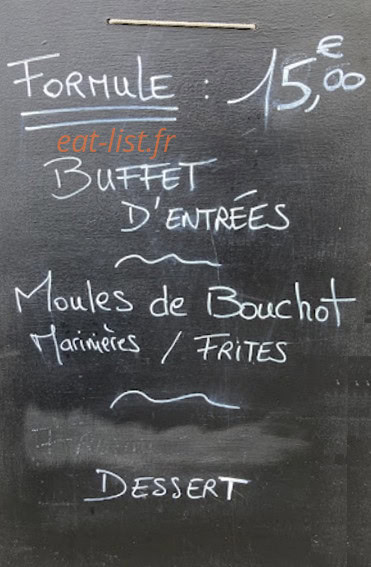 FORMULE : 15,00 €
eat-list.fr
BUFFET
D'ENTRÉES
Moules de Bouchot
Marinières / FRITES
DESSERT